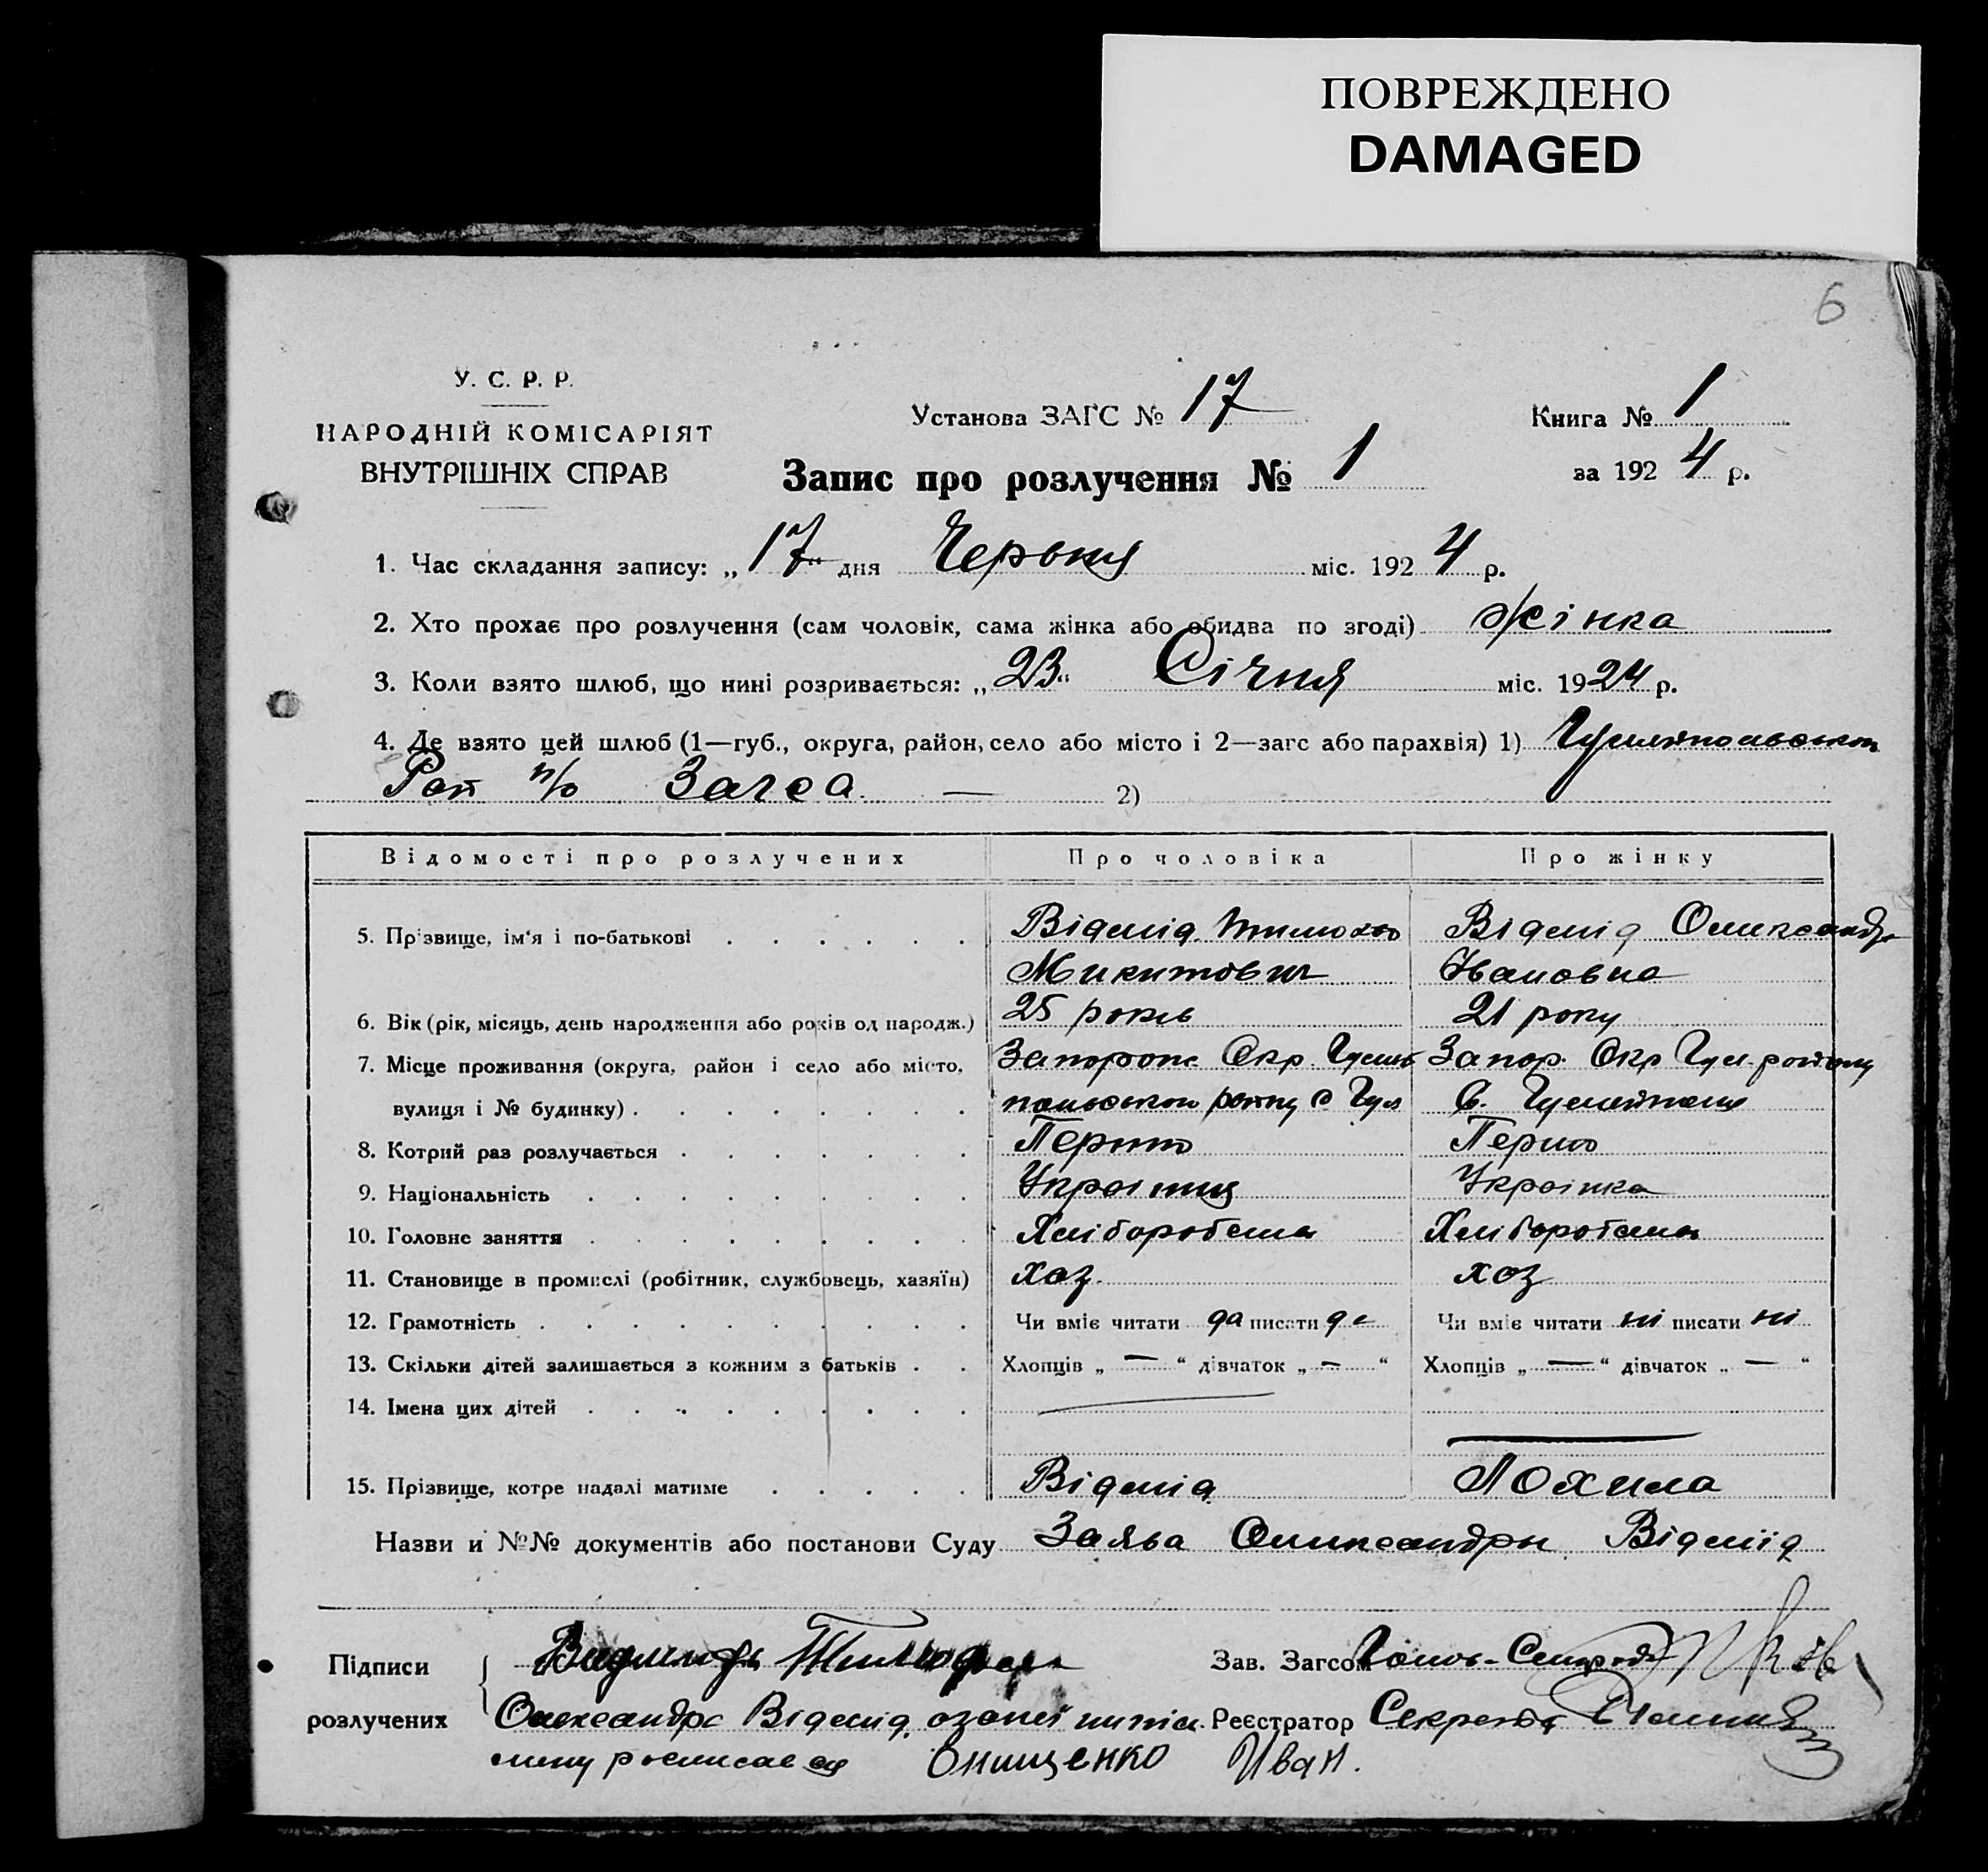 ПОВРЕЖДЕНО
DAMAGED
6
У. С. Р. Р.
НАРОДНІЙ КОМІСАРІЯТ
ВНУТРІШНІХ СПРАВ
Установа ЗАГС № 17
Книга № 1
за 1924 р.
Запис про розлучення № 1
1. Час складання запису: „17“ дня Червня міс. 1924 р.
2. Хто прохає про розлучення (сам чоловік, сама жінка або обидва по згоді) жінка
3. Коли взято шлюб, що нині розривається: „23“ Січня міс. 1924 р.
4. Де взято цей шлюб (1—губ., округа, район, село або місто і 2—загс або парахвія) 1) Гуляйпольськом
Рай п/о Загса — 2)
Відомості про розлучених Про чоловіка Про жінку
5. Прізвище, ім‘я і по-батькові Відмід Відмід Олександр
Микитович Івановна
6. Вік (рік, місяць, день народження або років од народж.) 25 років 21 року
7. Місце проживання (округа, район і село або місто, Запорож. Окр. Гуляй Запор. Окр Гул. району
вулиця і № будинку) польськом району с Гул С. Гуляйполе
8. Котрий раз розлучається Перший Перший
9. Національність Українец Українка
10. Головне заняття Хліборобства Хліборобства
11. Становище в промислі (робітник, службовець, хазяїн) хаз. хаз
12. Грамотність Чи вміє читати да писати да Чи вміє читати ні писати ні
13. Скільки дітей залишається з кожним з батьків Хлопців „ — “ дівчаток „ — “ Хлопців „ — “ дівчаток „ — “
14. Імена цих дітей
15. Прізвище, котре надалі матиме Відмід Лохила
Назви и №№ документів або постанови Суду Заява Олександры Відмід
Підписи Тимофей Зав. Загсом
розлучених Олександра Відмід Реєстратор Секретар
росписався Онищенко Иван.